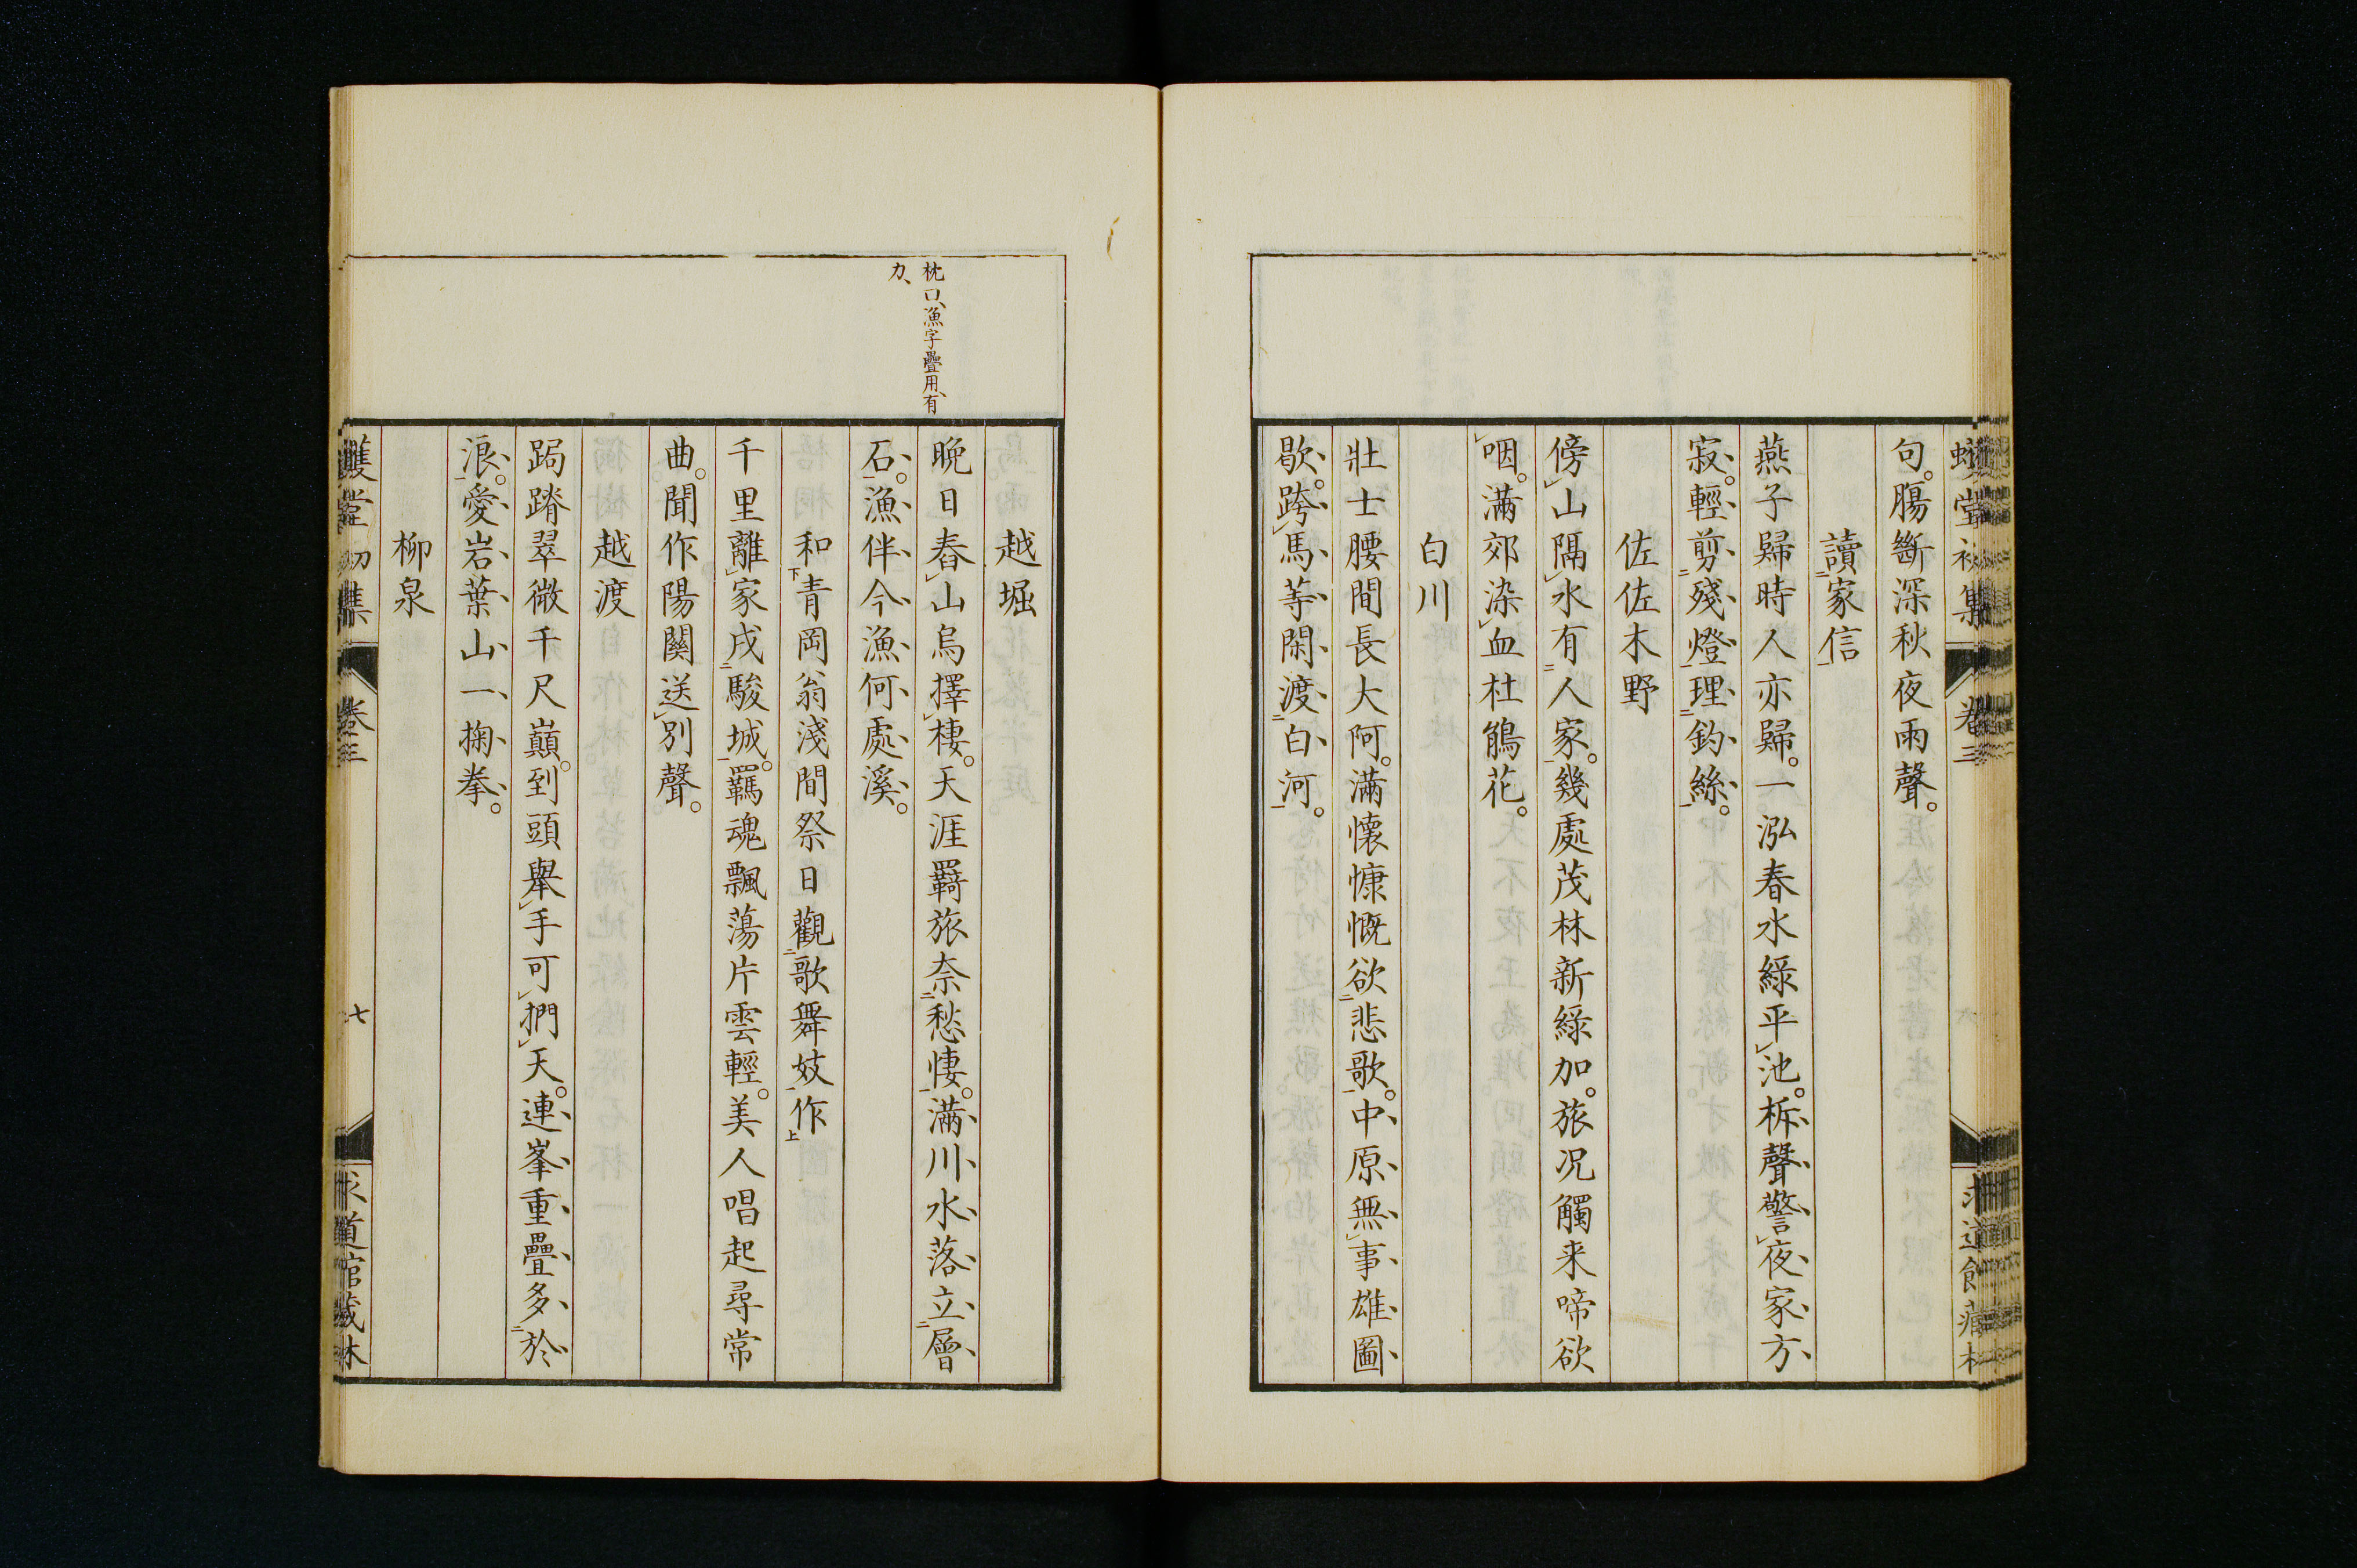 句。膓斷深秋夜雨聲。
讀家信
燕子歸時人亦歸。一泓春水綠平池。柝聲警夜家方
寂。輕剪殘燈理釣絲。
佐佐木野
傍山隔水有人家。幾處茂林新綠加。旅况觸来啼欲
咽。滿郊染血杜鵑花。
白川
壯士腰間長大阿。滿懷慷慨欲悲歌。中原無事雄圖
歇。跨馬等閑渡白河。
卷三
枕口、漁字疊用、有
力、
越堀
晩日舂山烏擇棲。天涯羇旅奈愁悽。滿川水落立層
石。漁伴今漁何處溪。
和青岡翁淺間祭日觀歌舞妓作
千里離家戍駿城。羈魂飄蕩片雲輕。美人唱起尋常
曲。聞作陽關送別聲。
越渡
跼蹐翠微千尺巔。到頭舉手可捫天。連峯重疊多於
浪。愛岩葉山一掬拳。
柳泉
卷三
七